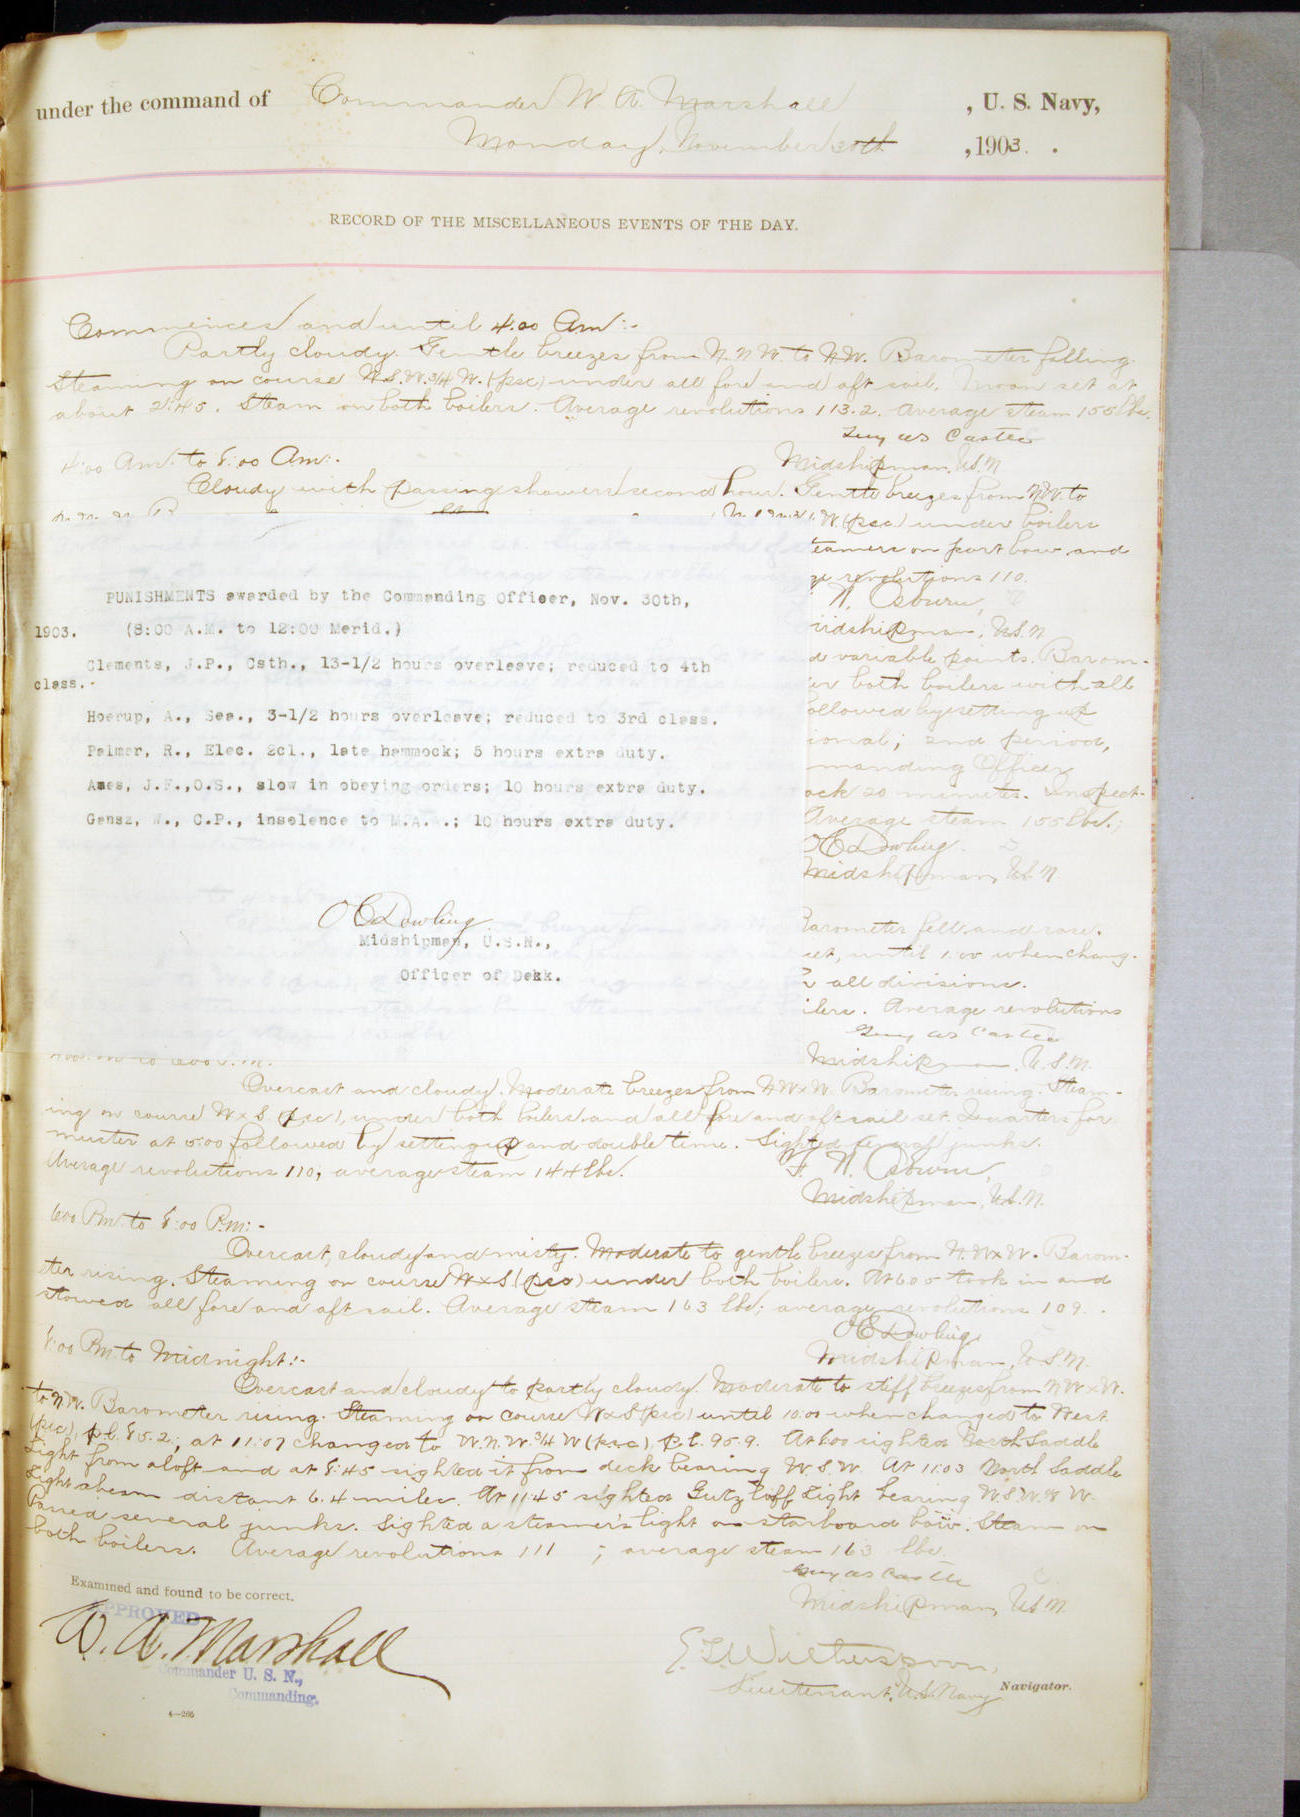 under the command of Commander W. A. Marshall , U. S. Navy,
Monday, November 30th ,1903.
RECORD OF THE MISCELLANEOUS EVENTS OF THE DAY.
Commences and until 4.00 Am:-
Partly cloudy. Gentle breezes from N.N.W. to N.W. Barometer falling.
Steaming on course W. 3/4 W. (psc) under all fore and aft sail. Moon set at
about 2:45. Steam on both boilers. Average revolutions 113.2. Average steam 155 lbs.
Guy W.S. Castle
Midshipman, U.S.N
4:00 Am. to 8:00 Am:-
Cloudy with passing showers second hour. Gentle breezes from N.W. to
W. (psc) under boilers
teamers on port bow and
revolutions 110.
W. Osburn,
Midshipman, U.S.N.
PUNISHMENTS awarded by the Commanding Officer, Nov. 30th,
1903. (8:00 A.M. to 12:00 Merid.)
Clements, J.P., Csth., 13-1/2 hours overleave; reduced to 4th
class.-
Hoerup, A., Sea., 3-1/2 hours overleave; reduced to 3rd class.
Palmer, R., Elec. 2cl., late hammock; 5 hours extra duty.
Ames, J.F.,O.S., slow in obeying orders; 10 hours extra duty.
Gensz, W., C.P., inselence to M.A.A.; 10 hours extra duty.
O C Dowling
Midshipman, U.S.N.,
Officer of Dekk.
d variable points. Barom-
er both boilers with all
ollowed by setting up
ional; 2nd period,
manding Officer
ock 20 minutes. Inspect-
Average steam 155 lbs.;
O C Dowling.
Midshipman, U.S.N.
Barometer fell and rose.
set, until 1:00 when chang-
all divisions.
ilers. Average revolutions
Guy W.S. Castle
Midshipman, U.S.N.
Overcast and cloudy. Moderate breezes from NWxW. Barometer rising. Steam-
ing on course WxS (psc), under both boilers and all fore and aft sail set. Quarters for
muster at 5:00 followed by setting up and double time. Sighted several junks.
Average revolutions 110, average steam 144 lbs.
F. W. Osburn,
Midshipman, U.S.N.
6:00 P.m. to 8:00 P.m:-
Overcast, cloudy and misty. Moderate to gentle breezes from N.WxW. Barom-
eter rising. Steaming on course WxS (psc) under both boilers. At 6:05 took in and
stowed all fore and aft sail. Average steam 163 lbs; average revolutions 109.
O C Dowling
Midshipman, U.S.N.
8:00 P.m. to Midnight:-
Overcast and cloudy to partly cloudy. Moderate to stiff breezes from NWxW.
to N.W. Barometer rising. Steaming on course WxS (psc) until 10:00 when changed to West
(psc), p.l. 85.2; at 11:07 changed to W.N.W. 3/4 W (psc) p.l. 95.9. At 8:00 sighted North Saddle
Light from aloft and at 8:45 sighted it from deck bearing W.S.W. At 11:03 North Saddle
Light abeam distant 6.4 miles. At 11:45 sighted Gutzlaff Light bearing
Passed several junks. Sighted a steamer's light on starboard bow. Steam on
both boilers. Average revolutions 111 ; average steam 163 lbs.
Guy W.S. Castle
Midshipman, U.S.N.
Examined and found to be correct.
APPROVED
W. A. Marshall
Commander U. S. N.,
Commanding.
E. T. Witherspoon,
Lieutenant, U.S. Navy Navigator.
4—265